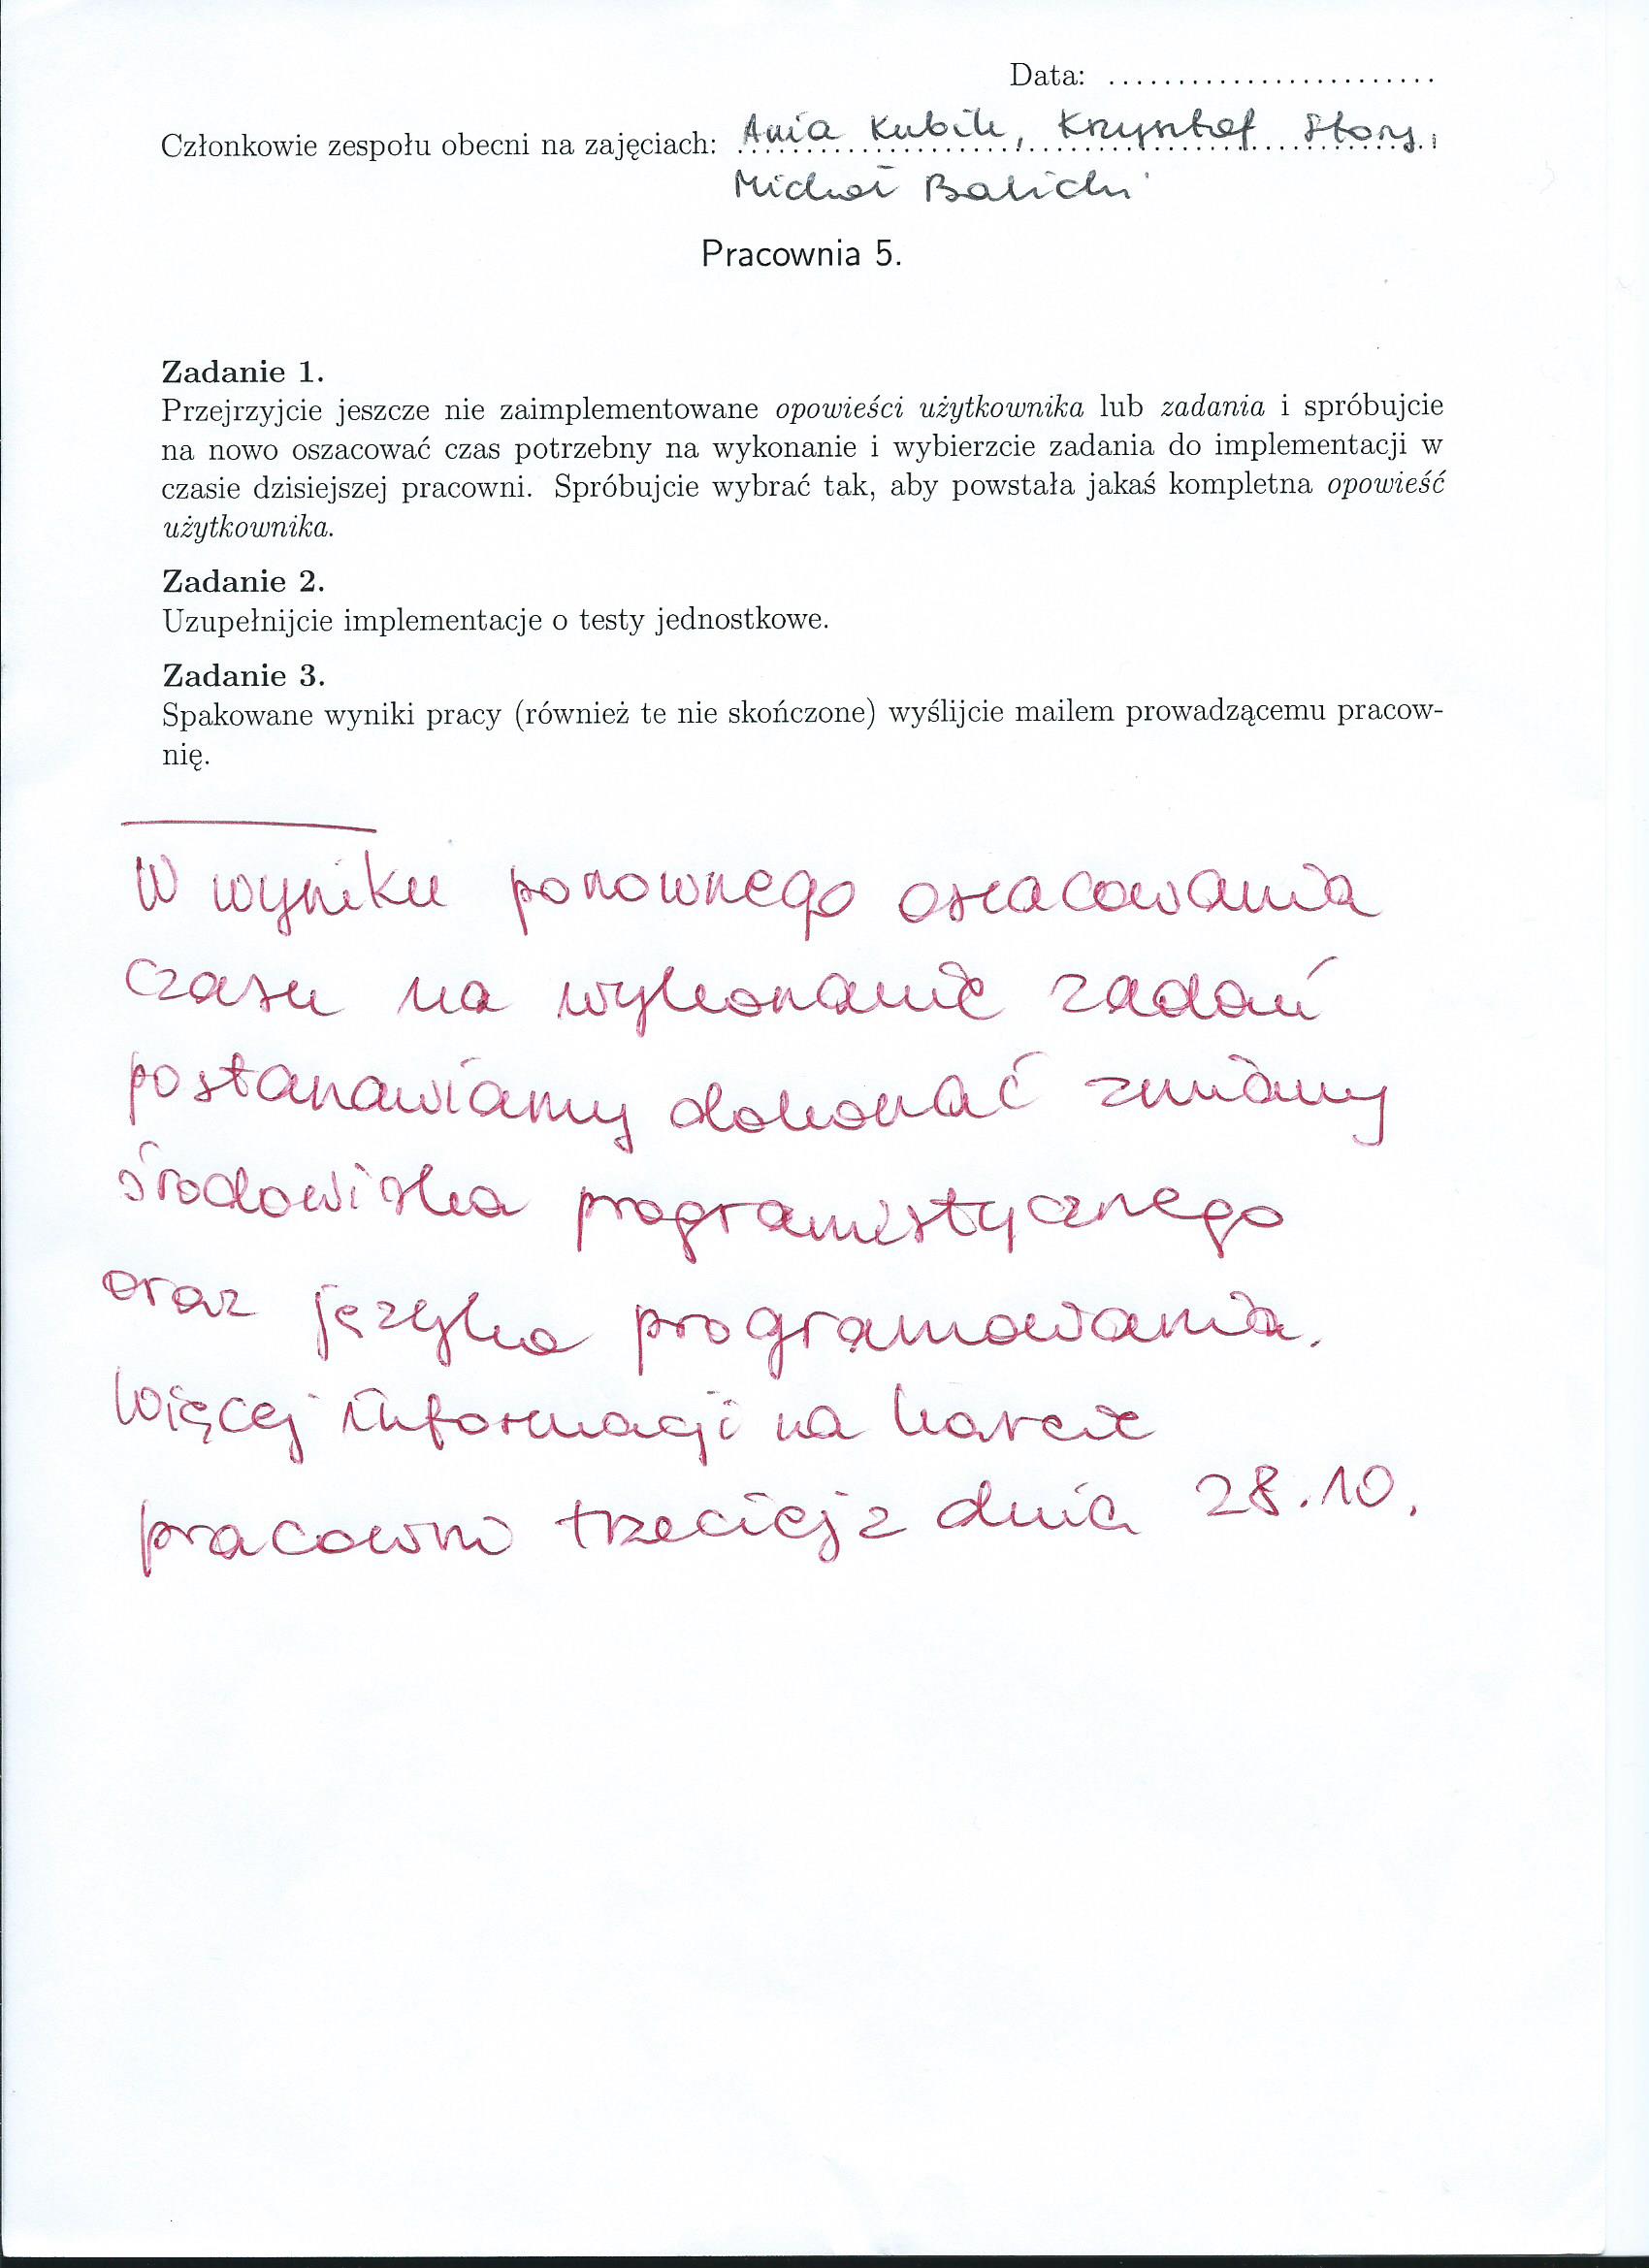 Data: ........................
Członkowie zespołu obecni na zajęciach: Ania Kubik, Krzysztof Story,
Michał Balicki
Pracownia 5.
Zadanie 1.
Przejrzyjcie jeszcze nie zaimplementowane opowieści użytkownika lub zadania i spróbujcie
na nowo oszacować czas potrzebny na wykonanie i wybierzcie zadania do implementacji w
czasie dzisiejszej pracowni. Spróbujcie wybrać tak, aby powstała jakaś kompletna opowieść
użytkownika.
Zadanie 2.
Uzupełnijcie implementacje o testy jednostkowe.
Zadanie 3.
Spakowane wyniki pracy (również te nie skończone) wyślijcie mailem prowadzącemu pracow-
nię.
W wyniku ponownego oszacowania
czasu na wykonanie zadań
postanawiamy dokonać zmiany
środowiska programistycznego
oraz języka programowania.
Więcej informacji na karcie
pracowni trzeciej z dnia 28.10.